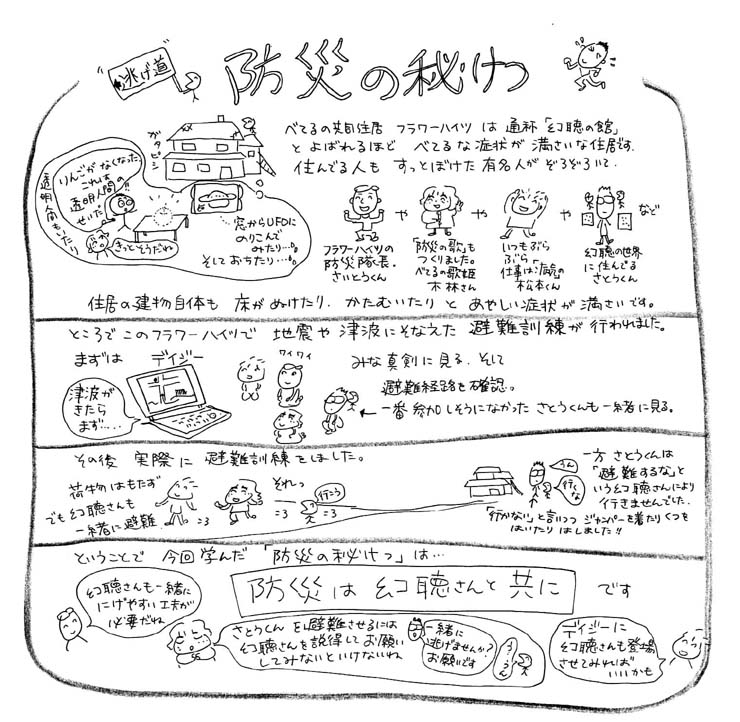 逃げ道
防災の秘けつ
べてるの共同住居 フラワーハイツ は 通称「幻聴の館」
と よばれるほど べてるな症状が 満さいな住居です.
住んでる人も すっとぼけた有名人が ぞろぞろいて、
ガタピシ
りんごがなくなった
これも
透明人間の
せいだ!!
透明人間もいたり
きっとそうだね
窓からUFOに
のりこんで
みたり…
そしておちたり…
や
や
や
など
フラワーハイツの
防災隊長.
さいとうくん
「防災の歌」も
つくりました。
べてるの歌姫
木林さん
いつもぶら
ぶら
仕事は「病気」の
松本くん
幻聴の世界
に住んでる
さとうくん
住居の建物自体も 床がぬけたり、かたむいたり と あやしい症状が 満さいです。
ところでこのフラワーハイツで 地震や 津波にそなえた 避難訓練が行われました。
まずは デイジー
津波が
きたら
まず…
ワイワイ
みな真剣に見る、そして
避難経路も確認。
← 一番 参加しそうになかった さとうくんも一緒に見る。
その後 実際に 避難訓練をしました。
荷物はもたず
でも幻聴さんも
一緒に避難
それっ
行こう
一方 さとうくんは
「避難するな」と
いう幻聴さんにより
行きませんでした.
うん
行くな
「行かない」と言いつつ ジャンパーを着たり くつを
はいたり はしました!!
ということで 今回 学んだ 「防災の秘けつ」は…
防災は 幻聴さんと 共に です
幻聴さんも一緒に
にげやすい工夫が
必要だね
さとうくん を避難させるには
幻聴さんを説得して お願い
してみないといけないね
一緒に
逃げませんか?
お願いです
うーん
デイジーに
幻聴さんも登場
させてみれば
いいかも